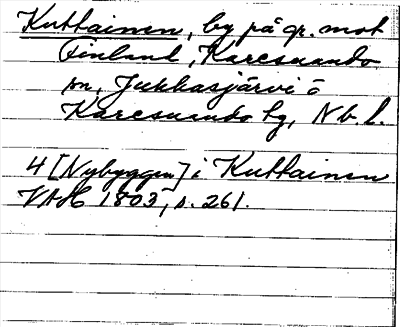 Kuttainen, by på gr. mot
Finland, Karesuando
sn, Jukkasjärvi o
Karesuando tg, Nb. l.
4 [Nybyggen] i Kuttainen
VAH 1803, s. 261.